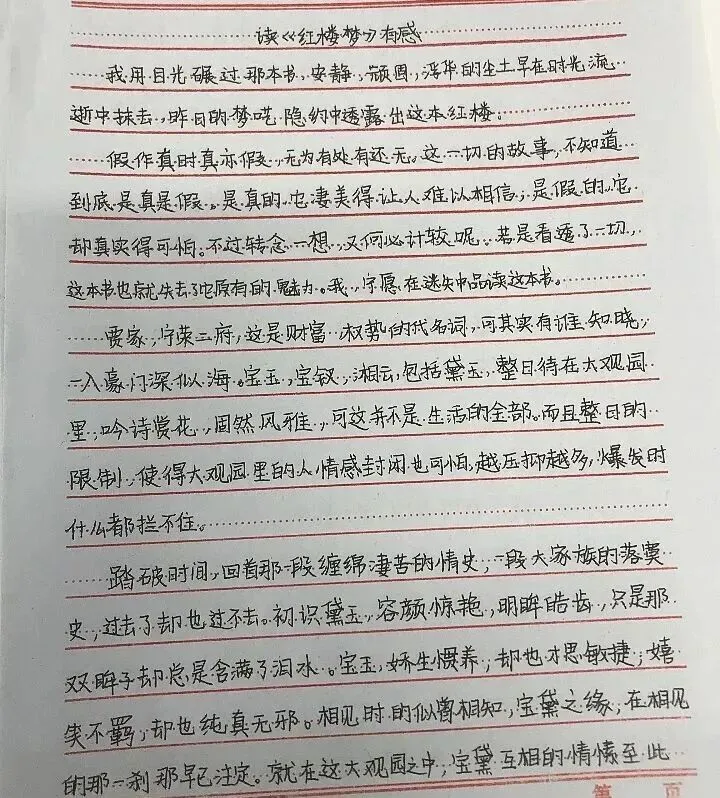 读《红楼梦》有感
我用目光碾过那本书,安静,顽固,浮华的尘土早在时光流
逝中抹去,昨日的梦呓隐约中透露出这本红楼。
假作真时真亦假,无为有处有还无。这一切的故事,不知道
到底是真是假。是真的,它凄美得让人难以相信;是假的,它
却真实得可怕。不过转念一想,又何必计较呢,若是看透了一切,
这本书也就失去了它原有的魅力。我,宁愿在迷失中品读这本书。
贾家,宁荣二府,这是财富、权势的代名词,可其实有谁知晓,
一入豪门深似海。宝玉,宝钗,湘云,包括黛玉,整日待在大观园
里,吟诗赏花,固然风雅,可这并不是生活的全部。而且整日的
限制,使得大观园里的人情感封闭也可怕,越压抑越多,爆发时
什么都拦不住。
踏破时间,回首那一段缠绵凄苦的情史,一段大家族的落寞
史,过去了却也过不去。初识黛玉,容颜惊艳,明眸皓齿,只是那
双眸子却总是含满了泪水。宝玉,娇生惯养,却也才思敏捷;嬉
笑不羁,却也纯真无邪。相见时的似曾相知,宝黛之缘,在相见
的那一刹那早已注定。就在这大观园之中,宝黛互相的情愫至此
第 页